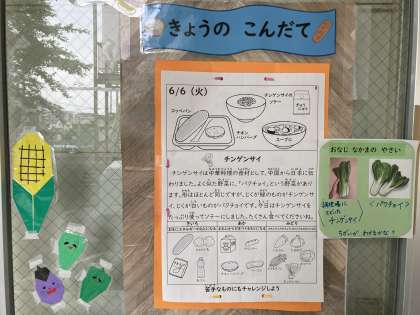 きょうの こんだて
6/6 (火)
チンゲンサイの
ソテー
ぎゅうにゅう
コッペパン
チキン
ハンバーグ
スープに
チンゲンサイ
チンゲンサイは中華料理の食材として、中国から日本に伝
わりました。よくにた野菜に、「パクチョイ」という野菜があり
ます。形はほとんど同じですが、じくが緑のものがチンゲンサ
イ、じくが白いものがパクチョイです。今日はチンゲンサイを
たっぷり使ってソテーにしました。たくさん食べてくださいね。
きいろ
あか
みどり
苦手なものにもチャレンジしよう
おなじ なかまの やさい
調理場に
とどいた
チンゲンサイ
パクチョイ
ちがいが わかるかな?